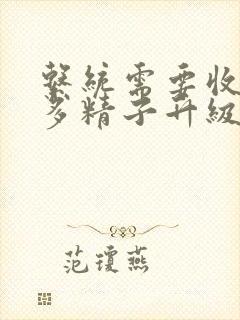 繫統需要收
多精子升級
范瓊燕